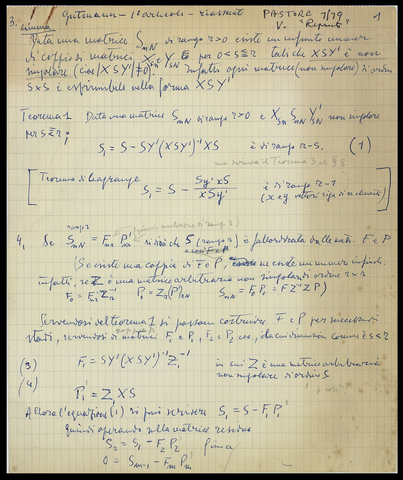 Guttmann - 1° articolo - riassunto PASTORE 7/79 1
V. "Reprint"
3. Lemma
Data una matrice S_mN di rango r>0 esiste un infinito numero
di coppie di matrici X Y per 0<s≤r tali che XSY' è non
singolare (cioè |XSY'|≠0), infatti ogni matrice (non singolare) di ordine
s×s è esprimibile nella forma XSY'
Teorema 1 Data una matrice S_mN di rango r>0 e X_sm S_mN Y'_sN non singolare
per s≤r;
S₁ = S - SY'(XSY')⁻¹XS è di rango r-s. (1)
Teorema di Lagrange S₁ = S - Sy'xS / xSy' è di rango r-1
(x e y vettori riga di n elementi)
4, Se S_mN = F_mr P'_rN si dirà che S (rango r) è fattorizzata dalle matr. F e P
(Se esiste una coppia di F e P, ne esiste un numero infinito.
infatti, se Z è una matrice arbitraria non singolare di ordine r×r
Servendosi del teorema 1 si possono costruire F e P per successivi
stadi, servendosi di matrici F₁ e P₁, F₂ e P₂ ecc, la cui dimensione comune è s<r
(3) F₁ = SY'(XSY')⁻¹Z₁⁻¹ in cui Z è una matrice arbitraria
(4) P₁' = Z₁XS non singolare di ordine s
Allora l'equazione (1) si può scrivere S₁ = S - F₁P₁'
quindi operando sulla matrice residua
S₂ = S₁ - F₂P₂' fino a
0 = S_m-1 - F_m P_m'